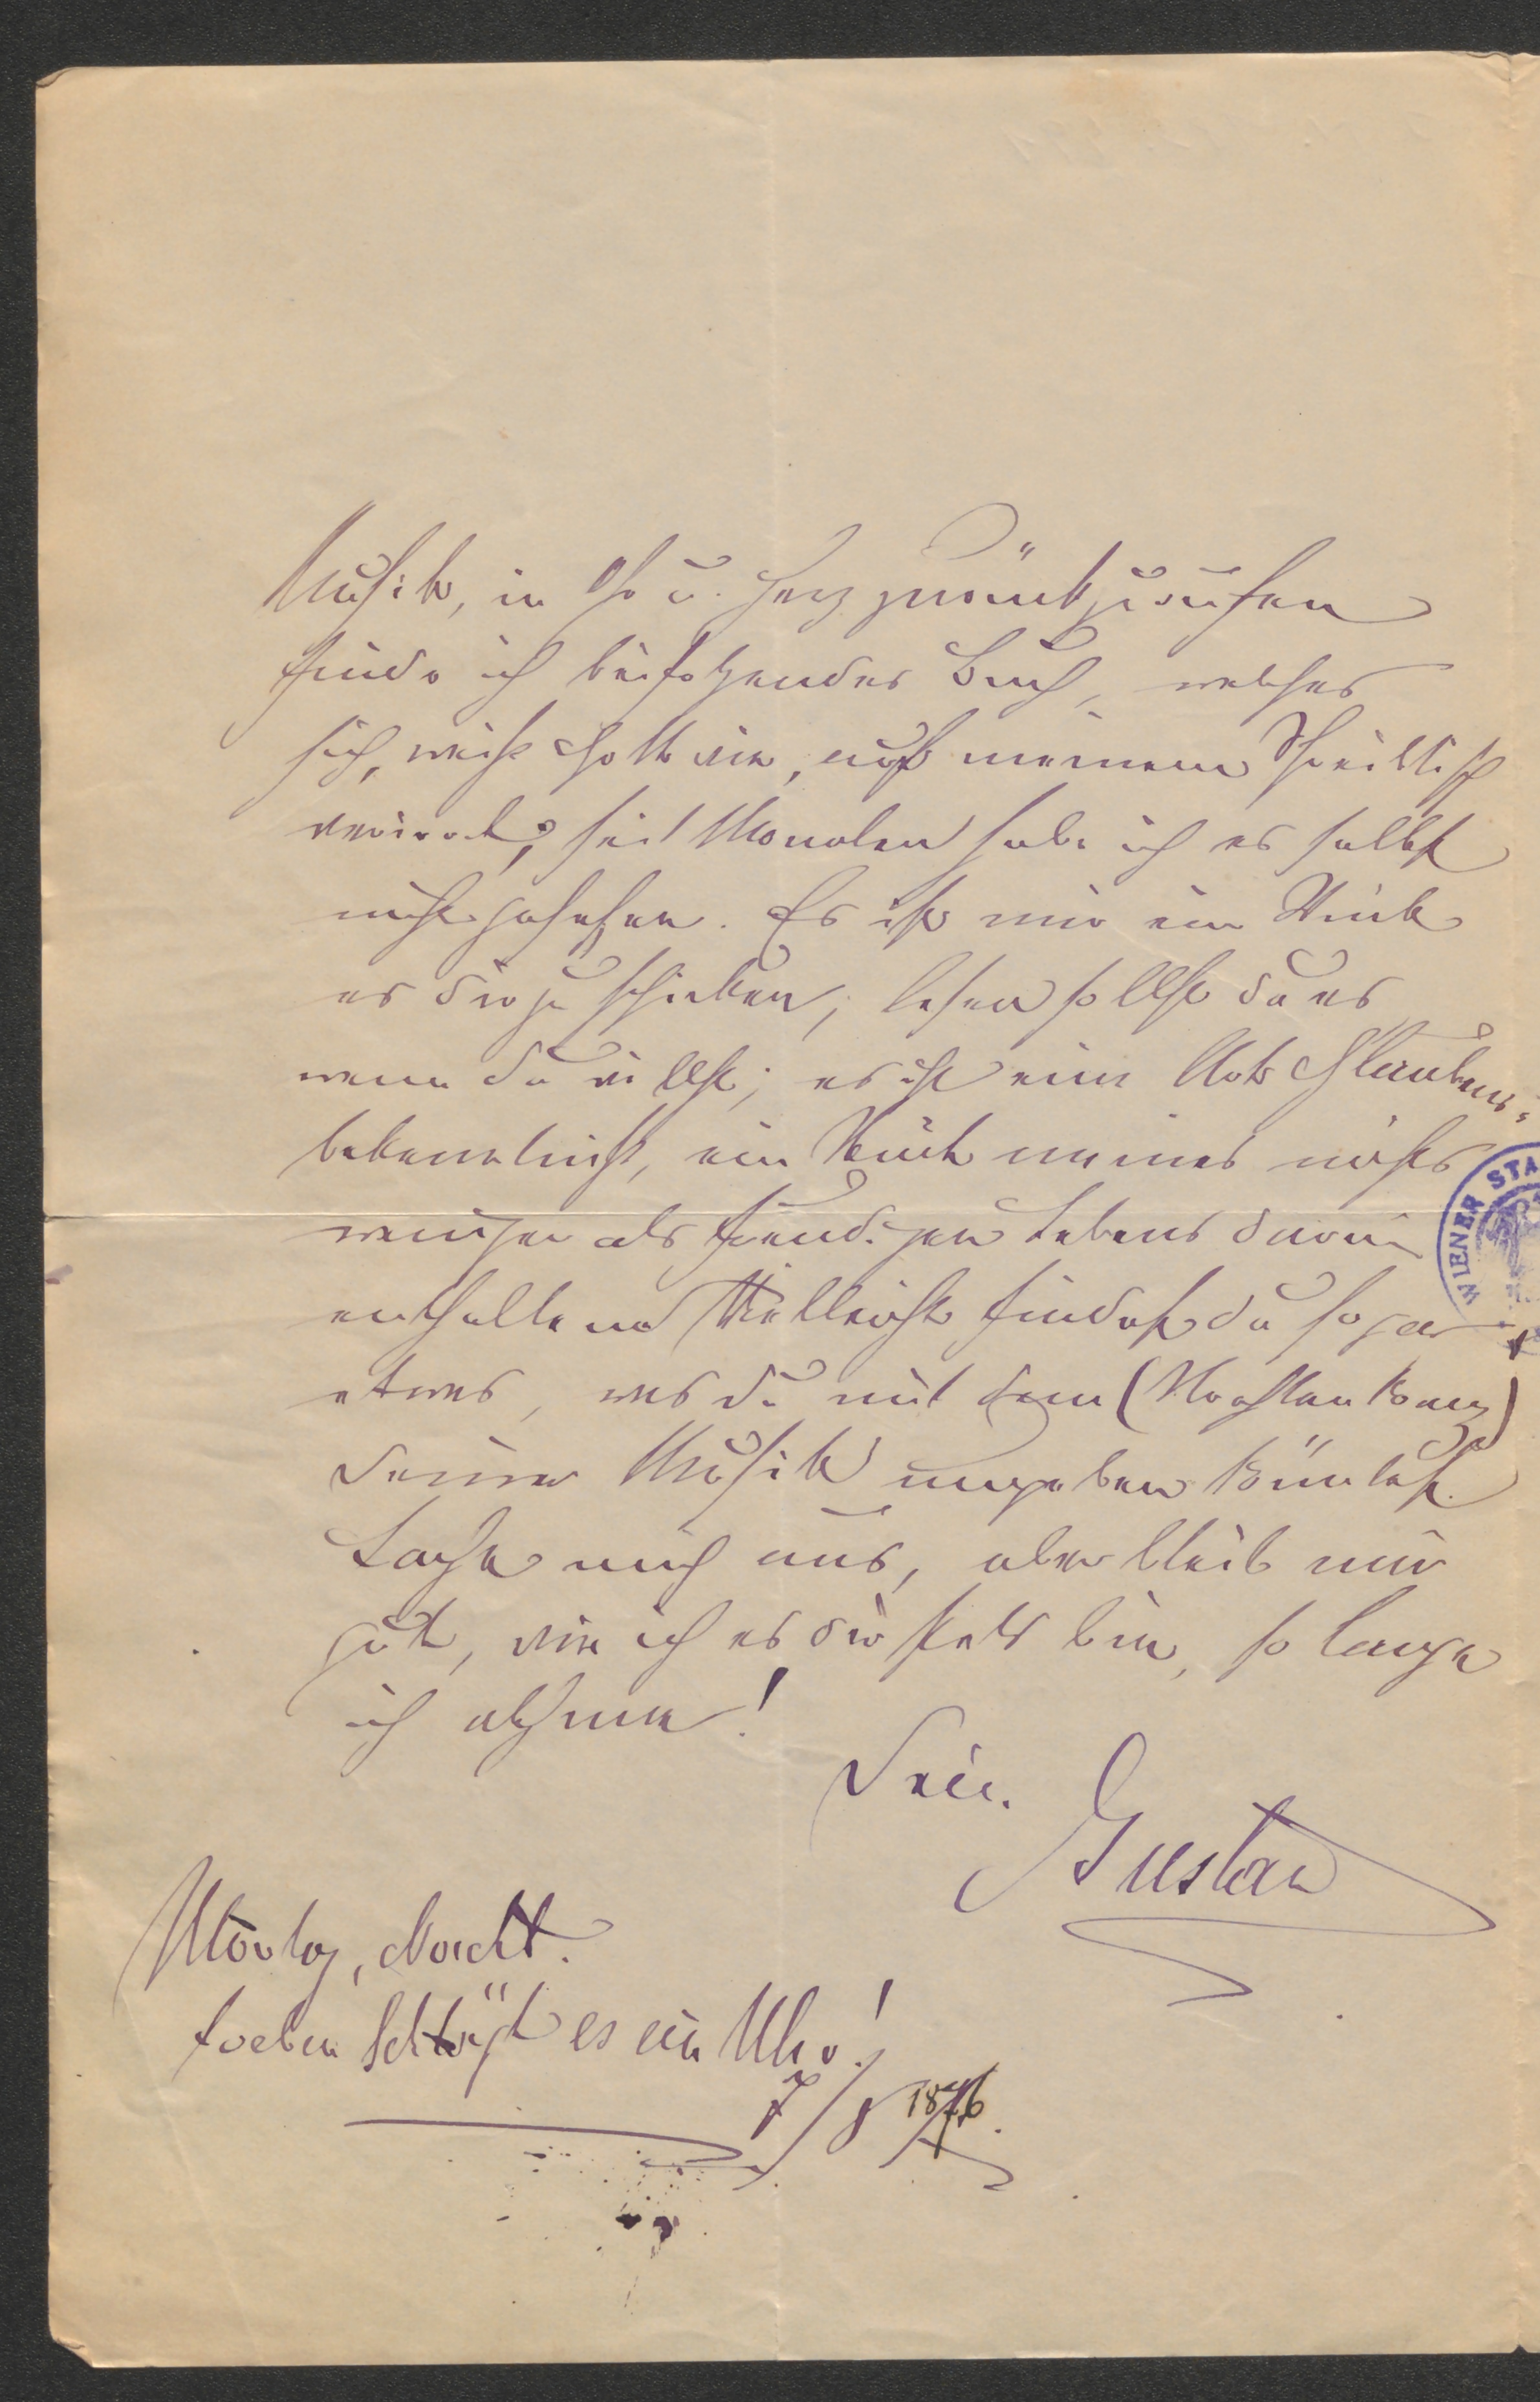 Musik, in Ohr u. Herz zurückzurufen
finde ich beifolgendes Buch, welches
sich, weiß Gott wie, auf meinem Schreibtisch
verirrt; seit Monaten habe ich es selbst
nicht gesehen. Es ist mir ein Wink
es dir zu schicken; lesen sollst du es
wenn du willst; es ist eine Art Glaubens-
bekenntniß, ein Stück meines nichts
weniger als freudigen Lebens darin
enthalten Vielleicht findest du sogar
etwas, was du mit dem (
deiner Musik umgeben könntest.
Lache mich aus, aber bleib mir
gut, wie ich es dir stets bin, so lange
ich athme!
Dein
Gustav
Montag, Nacht.
soeben schlägt es ein Uhr!
7/8 1876
WIENER STA